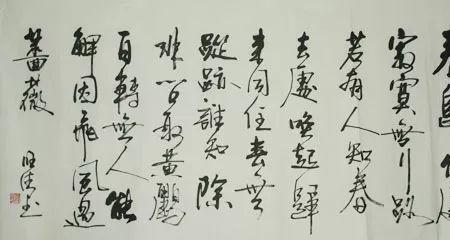 寂寞無行路
若有人知春
去處喚起歸
来同住春無
蹤跡誰知除
非問取黃鸝
百轉無人能
解因飛風過
薔薇